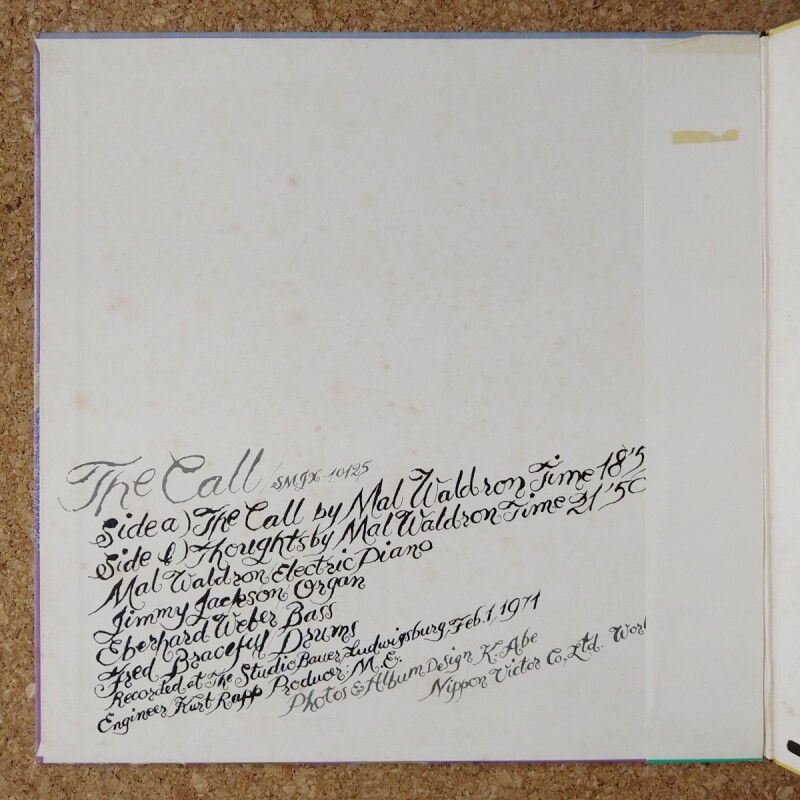 The Call / SMJX-10125
Side a) The Call by Mal Waldron Time 18'5
Side b) Thoughts by Mal Waldron Time 21'50
Mal Waldron / Electric Piano
Jimmy Jackson / Organ
Eberhard Weber / Bass
Fred Braceful / Drums
Recorded at The Studio Bauer, Ludwigsburg, Feb. 1, 1971
Engineer Kurt Rapp Producer: M.E.
Photos & Album Design K. Abe
Nippon Victor Co, Ltd.